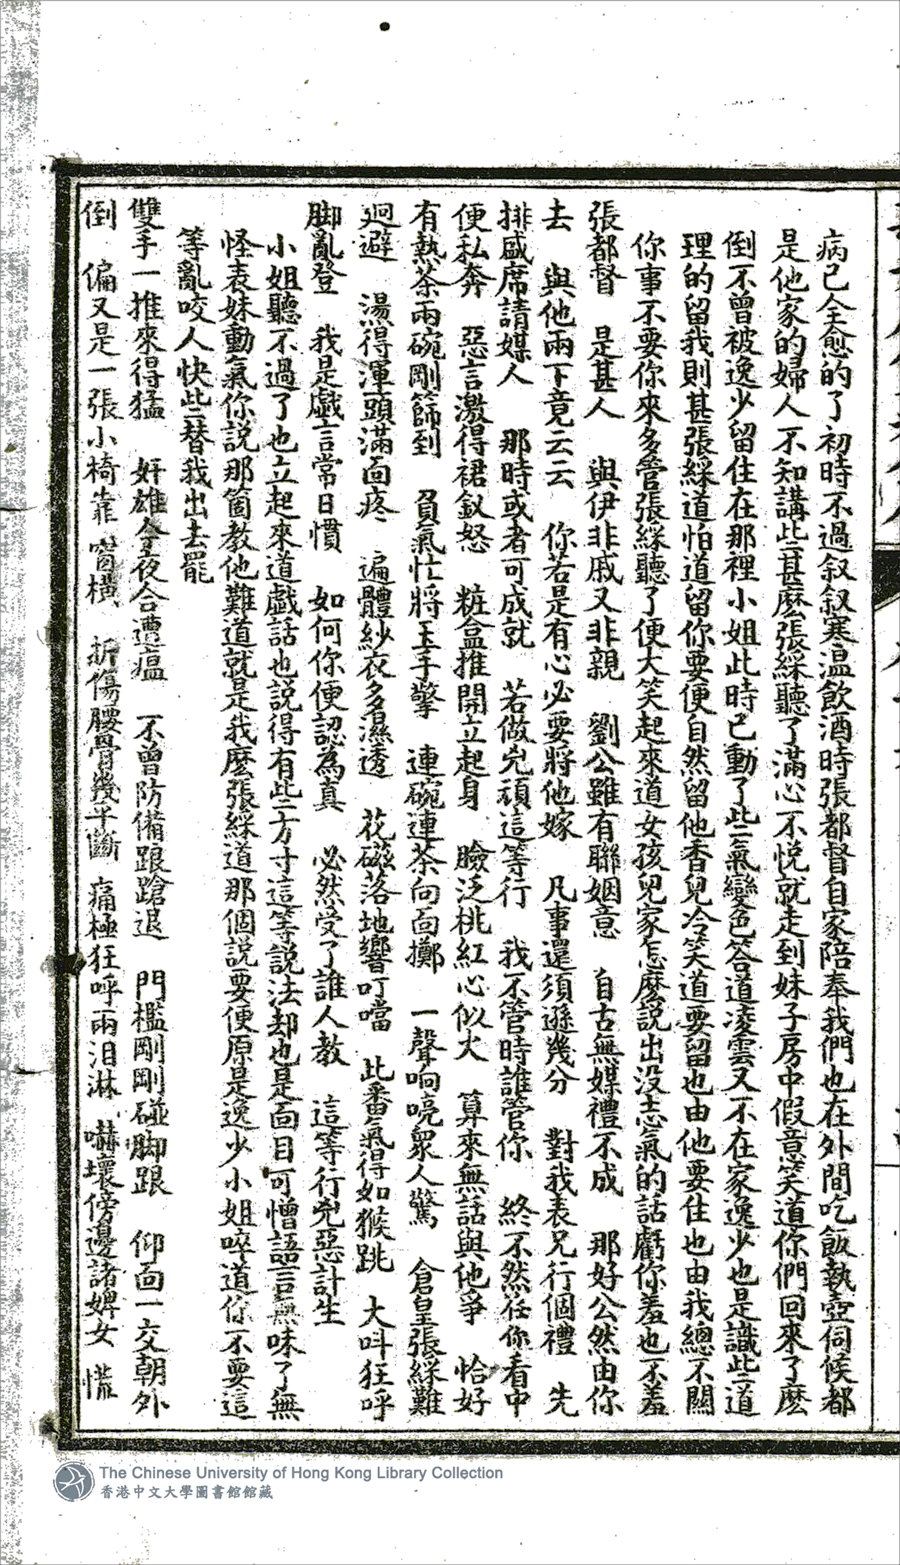 病已全愈的了初時不過叙叙寒温飲酒時張都督自家陪奉我們也在外間吃飯執壺伺候都
是他家的婦人不知講些甚麽張綵聽了滿心不悦就走到妹子房中假意笑道你們回來了麽
倒不曾被逸少留住在那裡小姐此時已動了些氣變色答道凌雲又不在家逸少也是識些道
理的留我則甚張綵道怕道留你要便自然留他香兒冷笑道要留也由他要住也由我總不關
你事不要你來多管張綵聽了便大笑起來道女孩兒家怎麽說出没志氣的話虧你羞也不羞
張都督　是甚人　與伊非戚又非親　劉公雖有聯姻意　自古無媒禮不成　那好公然由你
去　與他兩下竟云云　你若是有心必要將他嫁　凡事還須遜幾分　對我表兄行個禮　先
排盛席請媒人　那時或者可成就　若做兇頑這等行　我不管時誰管你　終不然任你看中
便私奔　惡言激得裙釵怒　粧盒推開立起身　臉泛桃紅心似火　算來無話與他爭　恰好
有熱茶兩碗剛篩到　負氣忙將玉手擎　連碗連茶向面擲　一聲响喨衆人驚　倉皇張綵難
迥避　湯得渾頭滿面疼　遍體紗衣多濕透　花磁落地響叮噹　此番氣得如猴跳　大呌狂呼
脚亂登　我是戲言常日慣　如何你便認為真　必然受了誰人教　這等行兇惡計生
小姐聽不過了也立起來道戲話也説得有些方寸這等説法却也是面目可憎語言無味了無
怪表妹動氣你説那箇教他難道就是我麽張綵道那個説要便原是逸少小姐啐道你不要這
等亂咬人快些替我出去罷
雙手一推來得猛　奸雄今夜合遭瘟　不曾防備踉蹌退　門檻剛剛碰脚跟　仰面一交朝外
倒　偏又是一張小椅靠窗橫　折傷腰骨幾乎斷　痛極狂呼兩泪淋　嚇壞傍邊諸婢女　慌
The Chinese University of Hong Kong Library Collection
香港中文大學圖書館館藏